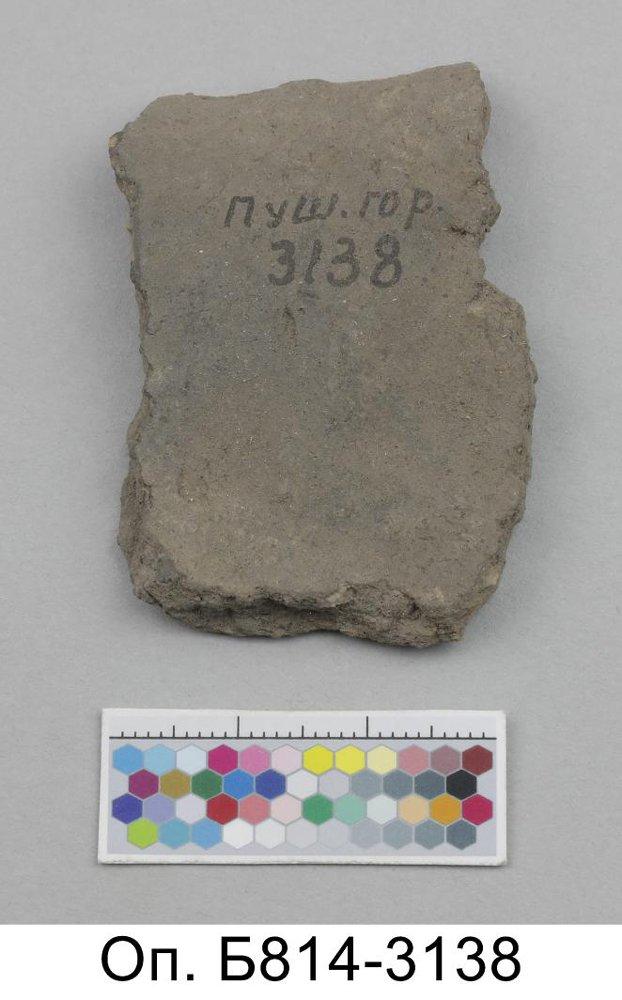 ПУШ.ГОР.
3138
Оп. Б814-3138